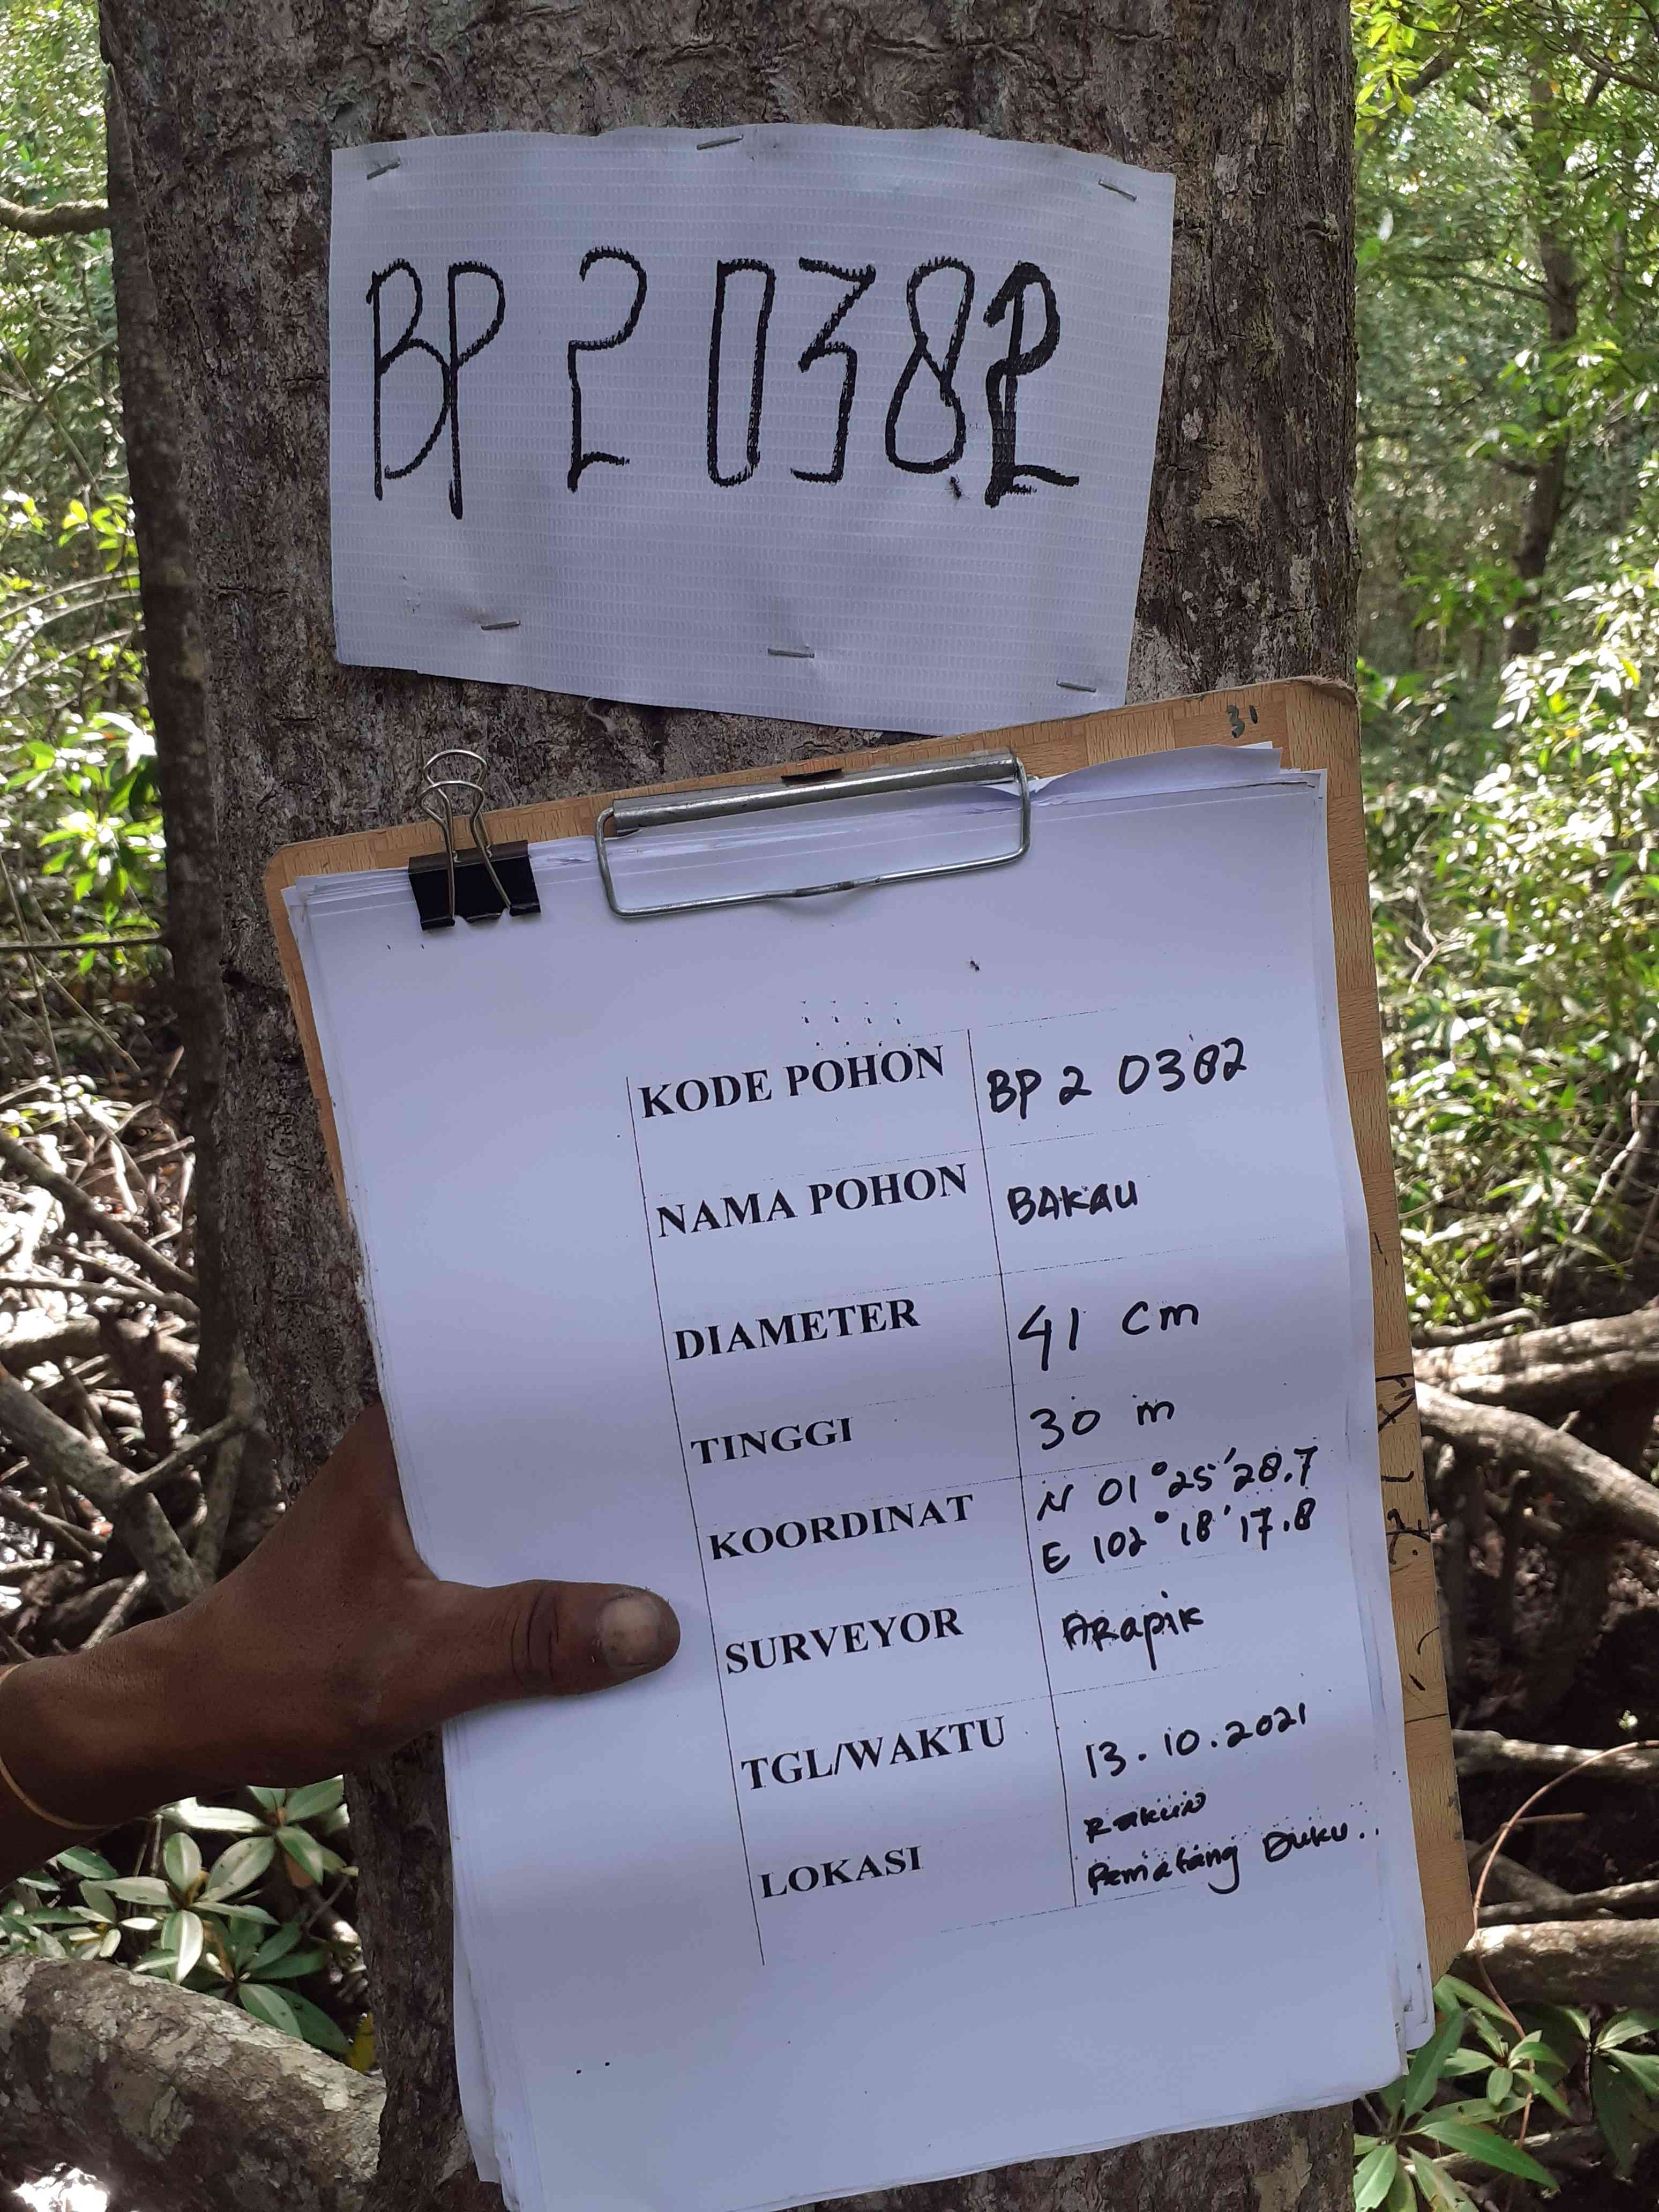 BP 2 0382
31
KODE POHON BP 2 0382
NAMA POHON BAKAU
DIAMETER 41 cm
TINGGI 30 m
KOORDINAT N 01°25'28.7
E 102°18'17.8
SURVEYOR ARapik
TGL/WAKTU 13.10.2021
LOKASI
Pematang Duku..